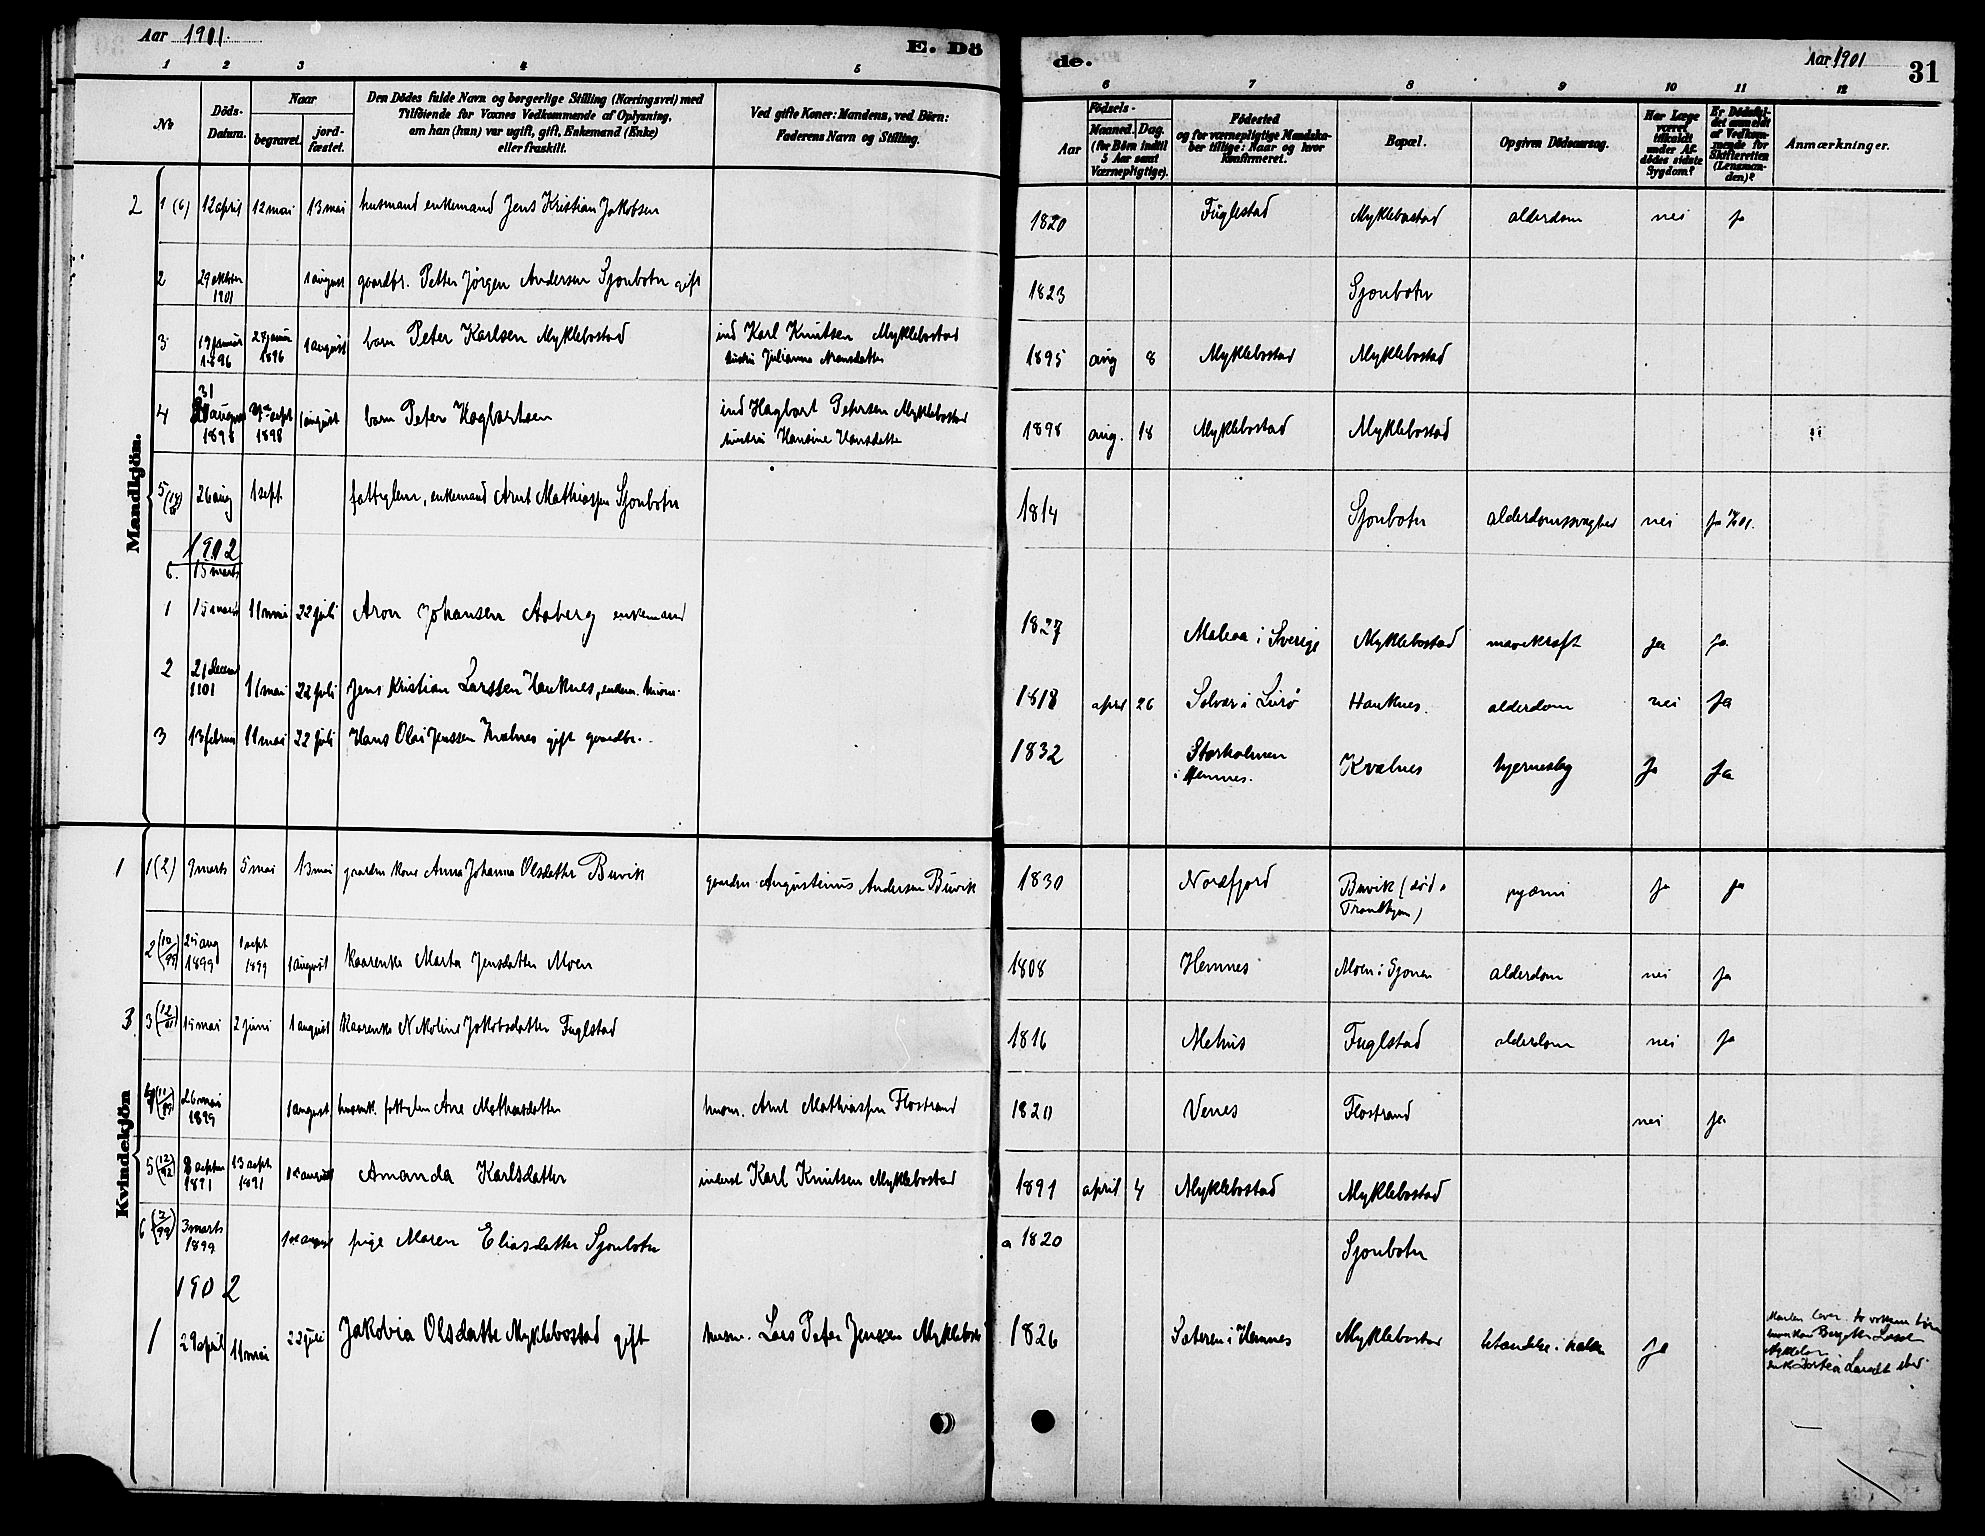 Aar 1901.
E. Dö
de.
Aar 1901
31
1 2 3 4 5
6 7 8 9 10 11 12
No
Döds-
Datum.
Naar
begravet.
jord-
fæstet.
Den Dödes fulde Navn og borgerlige Stilling (Næringsvei) med
Tilföiende for Voxnes Vedkommende af Oplysning,
om han (hun) var ugift, gift, Enkemand (Enke)
eller fraskilt.
Ved gifte Koner: Mandens, ved Börn:
Faderens Navn og Stilling.
Födsels-
Aar
Maaned. Dag.
(for Börn indtil
5 Aar samt
Værnepligtige).
Födested
og for værnepligtige Mandska-
ber tillige: Naar og hvor
Konfirmeret.
Bopæl.
Opgiven Dödsaarsag.
Har Læge
været
tilkaldt
under Af-
dödes sidste
Sygdom?
Er Dödsfal-
det anmeldt
af Vedkom-
mende for
Skifteretten
(Lensman-
den)?
Anmærkninger.
Mandkjön.
2 1 (6) 12 april 12 mai 13 mai husmand enkemand Jens Kristian Jakobsen 1820 Fuglestad Myklebostad alderdom nei ja
2 29 oktober 1901 1 august gaardbr. Petter Jørgen Andersen Sjonbotn gift 1823 Sjonbotn
3 19 januar 1896 28 januar 1896 1 august barn Peter Karlsen Myklebostad ind Karl Knutsen Myklebostad
hustru Julianna 1895 aug 8 Myklebostad Myklebostad
4 31 august 1898 sept 1898 1 august barn Peter Hagbartsen ind Hagbart Petersen Myklebostad
hustru Hansine Hansdatter 1898 aug. 18 Myklebostad Myklebostad
5 26 aug 1 sept fattiglem, enkemand Arnt Mathiassen Sjonbotn 1814 Sjonbotn alderdomssvaghed nei ja
1902
6. 15 marts
1 15 marts 11 mai 22 juli Aron Johansen Aaberg enkemand 1827 Malaa i Sverige Myklebostad mavekræft ja ja
2 21 decem 1101 11 mai 22 juli Jens Kristian Larssen Hauknes, 1818 april 26 Solvær i Lurø Hauknes. alderdom nei ja
3 13 februar 11 mai 22 juli Hans Olai Jenssen Kvalnes gift gaardbr. 1832 Storholmen
i Hemnes. Kvalnes hjerneslag ja ja
Kvindekjön
1 1 (2) 9 marts 5 mai 13 mai gaardm kone Anna Johanna Olsdatter Buvik gaardm. Augustinus Andersen Buvik 1830 Nordfjord Buvik (død i
Trondhjem) pyæmi ja ja
2 (10/99) 25 aug 1899 1 sept 1899 1 august kaarenke Marta Jensdatter Moen 1808 Hemnes Moen i Sjonen alderdom nei ja
3 3 15 mai 2 juni 1 august kaarenke Nikoline Jakobsdatter Fuglstad 1816 Mehus Fuglstad alderdom nei ja
4 26 mai 1899 1 august fattiglem Ane Mathiasdatter husm. Arnt Mathiassen Flostrand 1820 Venes Flostrand nei ja
5 (12/92) 8 septem 1891 13 sept 1891 1 august Amanda Karlsdatter inderst Karl Knutsen Myklebostad 1891 april 4 Myklebostad Myklebostad
6 3 marts 1899 1 august pige Maren Eliasdatter Sjonbotn 1820 Sjonbotn
1902
1 29 april 11 mai 22 juli Jakobia Olsdatter Myklebostad gift husm. Lars Peter Jenssen Myklebost 1826 Sæteren i Hemnes Myklebostad betændelse i ja
Manden lever.